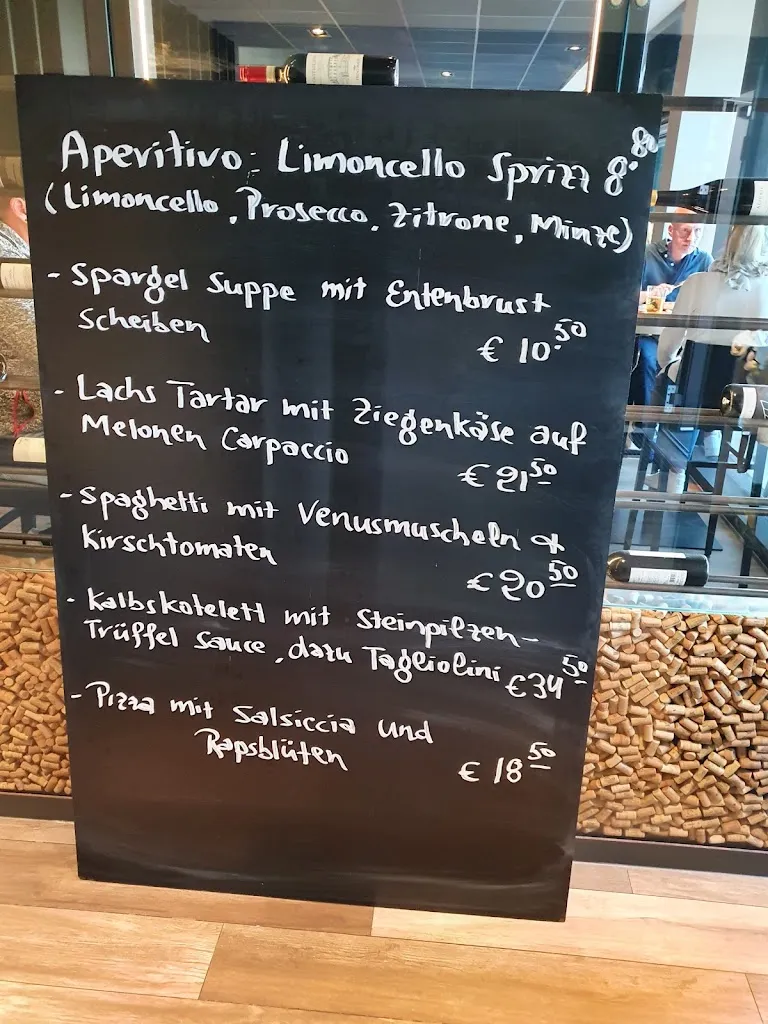 Aperitivo: Limoncello Sprizz 8.80
(Limoncello, Prosecco, Zitrone, Minze)
- Spargel Suppe mit Entenbrust
Scheiben € 10.50
- Lachs Tartar mit Ziegenkäse auf
Melonen Carpaccio € 21 50
- Spaghetti mit Venusmuscheln &
Kirschtomaten € 20 50
- Kalbskotelett mit Steinpilzen-
Trüffel Sauce, dazu Tagliolini € 34 50
- Pizza mit Salsiccia und
Rapsblüten € 18 50